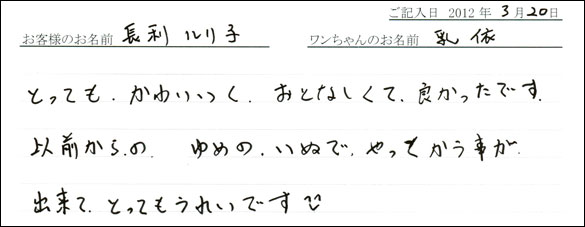 ご記入日 2012年 3月20日
お客様のお名前 長利 ルリ子 ワンちゃんのお名前 乳依
とっても、かわいっく、おとなしくて、良かったです。
以前から、の、ゆめの、いぬで、やっとかう事が、
出来て、とってもうれいです